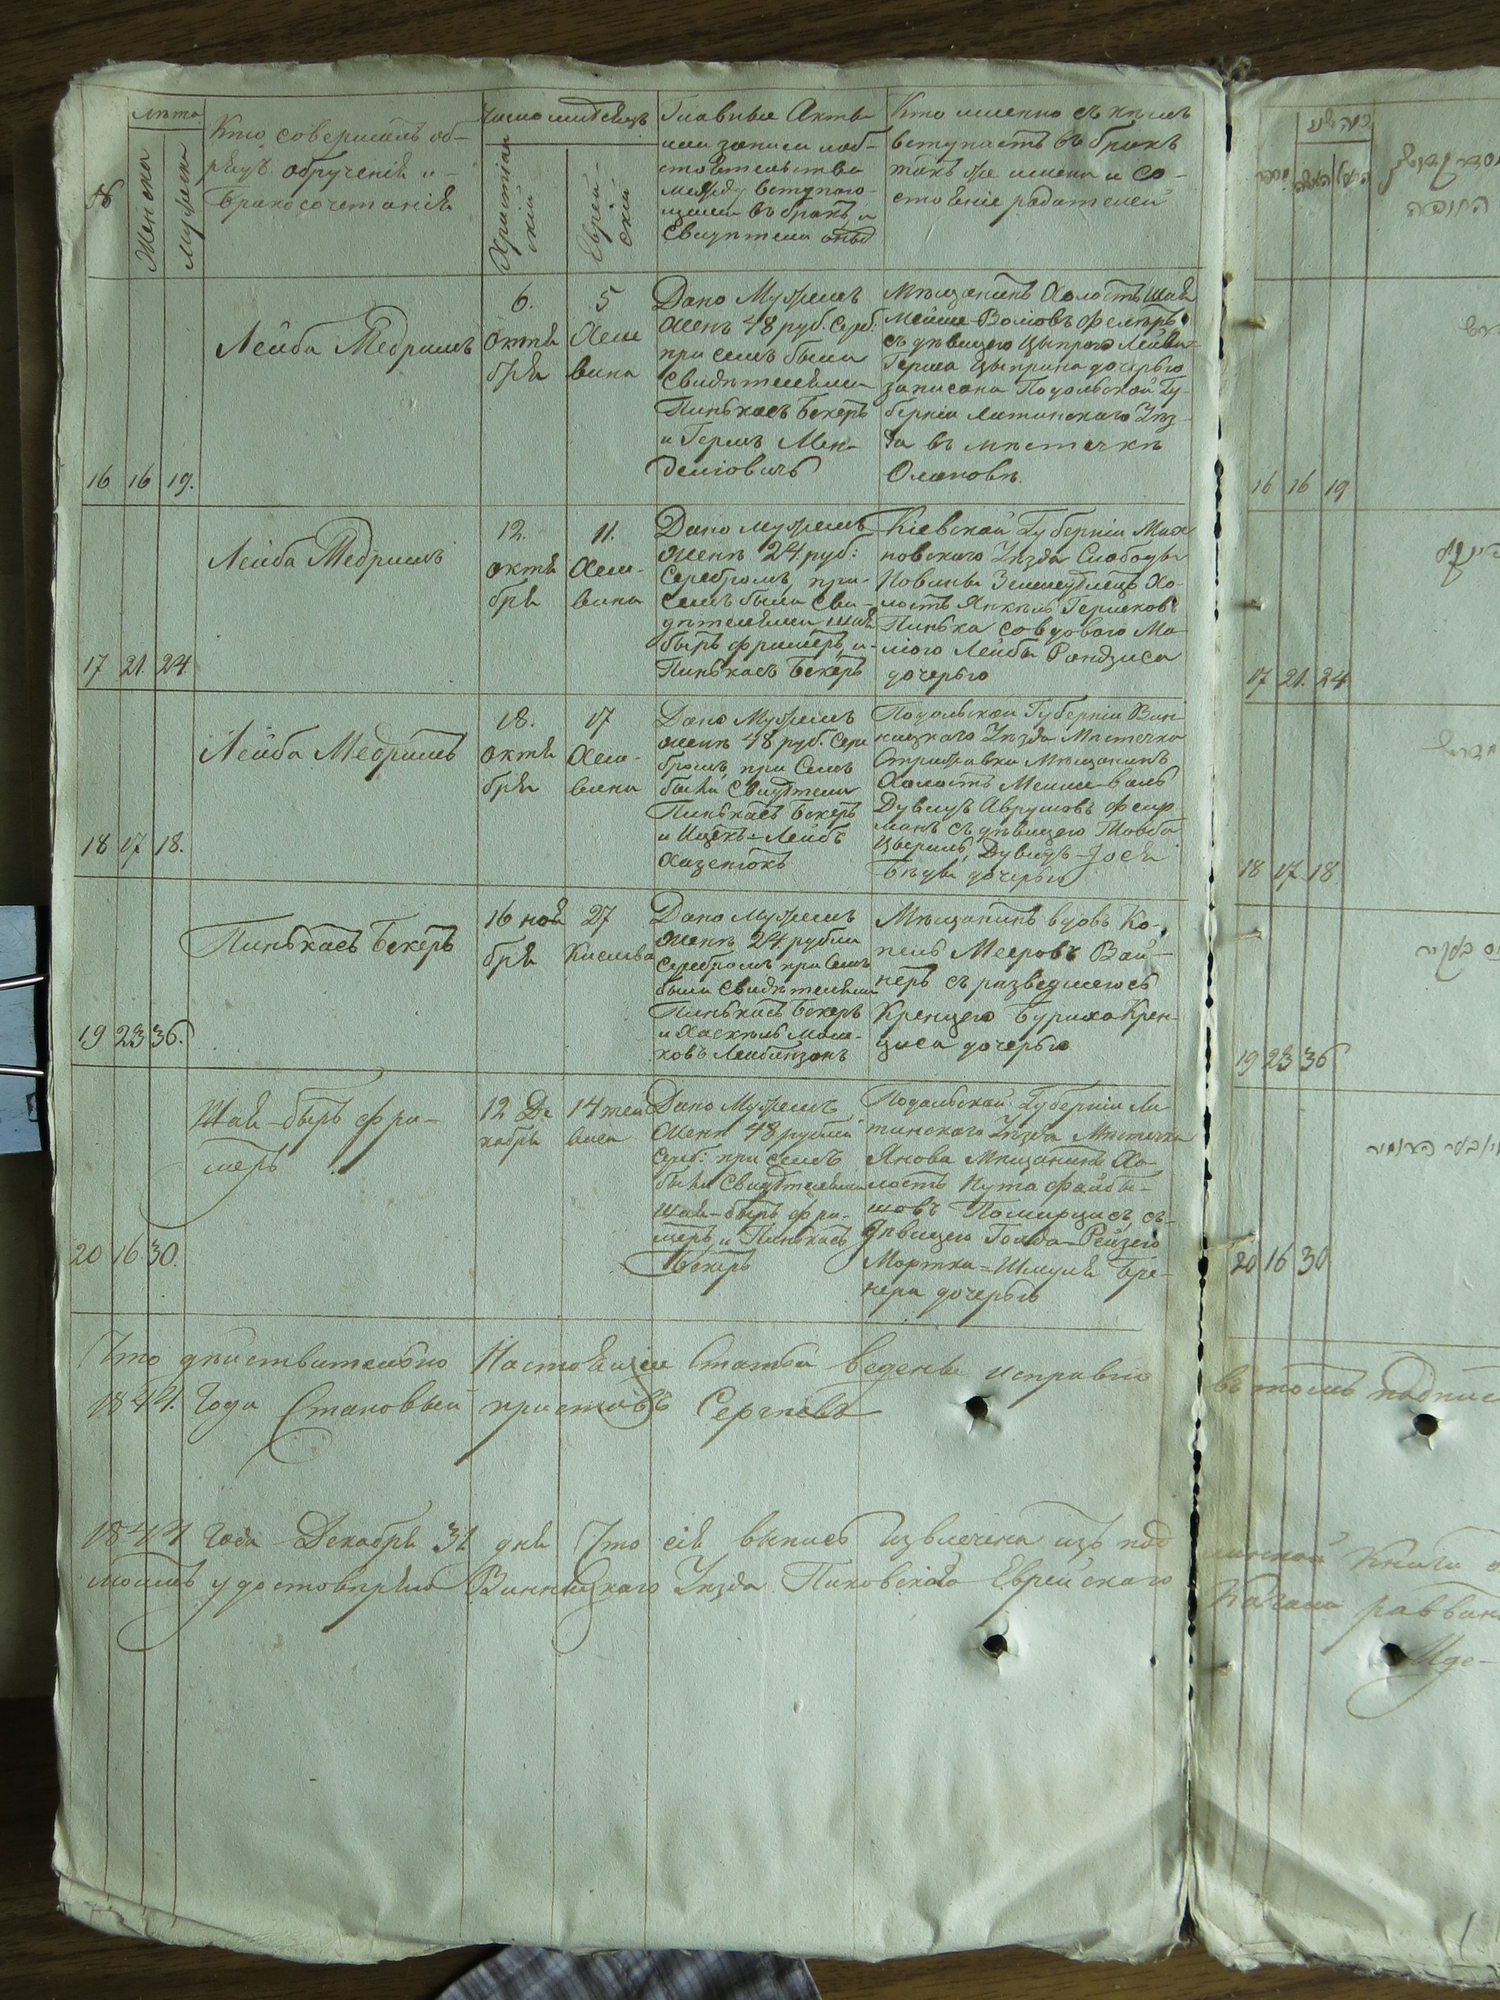 №
лѣта
Женска
Мужеска
Кто совершалъ об-
рядъ обрученія и-
Бракосочетанія
Число и мѣсяцъ
Христіан
скій
Еврей-
скій
Главные Акты
или записи и об-
стоятельства
между вступаю-
щими въ бракъ и
Свидѣтели оныхъ
Кто именно съ кѣмъ
вступаетъ въ бракъ
такъ же имена и со-
стояніе родителей
16 16 19.
Лейба Медришъ
6.
октя
бря
5
Хеш
вина
Дано Мужемъ
Женѣ 48 руб. Сереб:
при семъ были
Свидѣтелями
Пинькасъ Бекеръ
и Гершъ Мен-
делювичъ
Мѣщанинъ Холостъ Шая
Мейше Волювъ Фельтръ
съ дѣвицею Цыпрою Лейви
Герша Цыприна дочерью
записана Подольской Гу-
берніи Литинскаго Уѣз-
да въ мѣстечкѣ
17 21. 24
Лейба Медришъ
12.
октя
бря
11.
Хеш-
вина
Дано мужемъ
женѣ 24 руб:
Серебромъ, при-
семъ были Сви-
дѣтелями Шая
быръ Фришеръ, и-
Пинькасъ Бекеръ
Кіевской Губерніи Мах
новскаго Уѣзда Слободы
Холостъ Янкель Гершковъ
Пинька со вдовою Ма-
лею Лейбы Рондзиса
дочерью
18 17 18.
Лейба Медришъ
18.
октя
бря
17
Хеш-
вина
Дано Мужемъ
женѣ 48 руб. Сере
бромъ, при Семъ
были Свидѣтели
Пинькасъ Бекеръ
и Ицекъ-Лейбъ
Хаценюкъ
Подольской Губерніи Вин-
ницкаго Уѣзда Мѣстечка
Стрижавки Мѣщанинъ
Холостъ Мейше-Волъ
Дувидъ Аврумовъ Фаер
манъ съ дѣвицею Товба
Цверилъ, Дувидъ-Іося
дочерью
19 23 36.
Пинькасъ Бекеръ
16 ноя
бря
27
Кислева
Дано Мужемъ
Женѣ 24 рубли
Серебромъ при Семъ
были Свидѣтелями
Пинькасъ Бекеръ
и Хаскель Мош-
ковъ Лейбинзонъ
Мѣщанинъ вдовъ Ко-
пель Мееровъ Вай-
неръ съ разведшеюся
Кренцею Буриха Крен-
циса дочерью
20 16 30.
Шая-быръ Фри-
шеръ
12 Де
кабря
14 теи
виса
Дано Мужемъ
Женѣ 48 рублей
Сереб: при семъ
были Свидѣтелями
Шая-быръ Фри-
шеръ и Пинькасъ
Бекеръ
Подольской Губерніи Ли
тинскаго Уѣзда Мѣстечка
Янова Мѣщанинъ Хо-
лостъ Нута Файби-
шовъ Помиранцъ, съ-
дѣвицею Голда-Рейзею
Мортка-Шмуля Бре-
нера дочерью
Что дѣйствительно Настоящіи Статьи ведены исправно въ томъ подпис
1844. Года Становый приставъ Сергѣевъ
1844 Года Декабря 31 дня Что сія выпись извлечена изъ под линной Книги
удостовѣряю Винницкаго Уѣзда Пиковскаго Еврейскаго Кагала раввин
16 16 19
17 21. 24
18 17 18
19 23 36
20 16 30
החופה